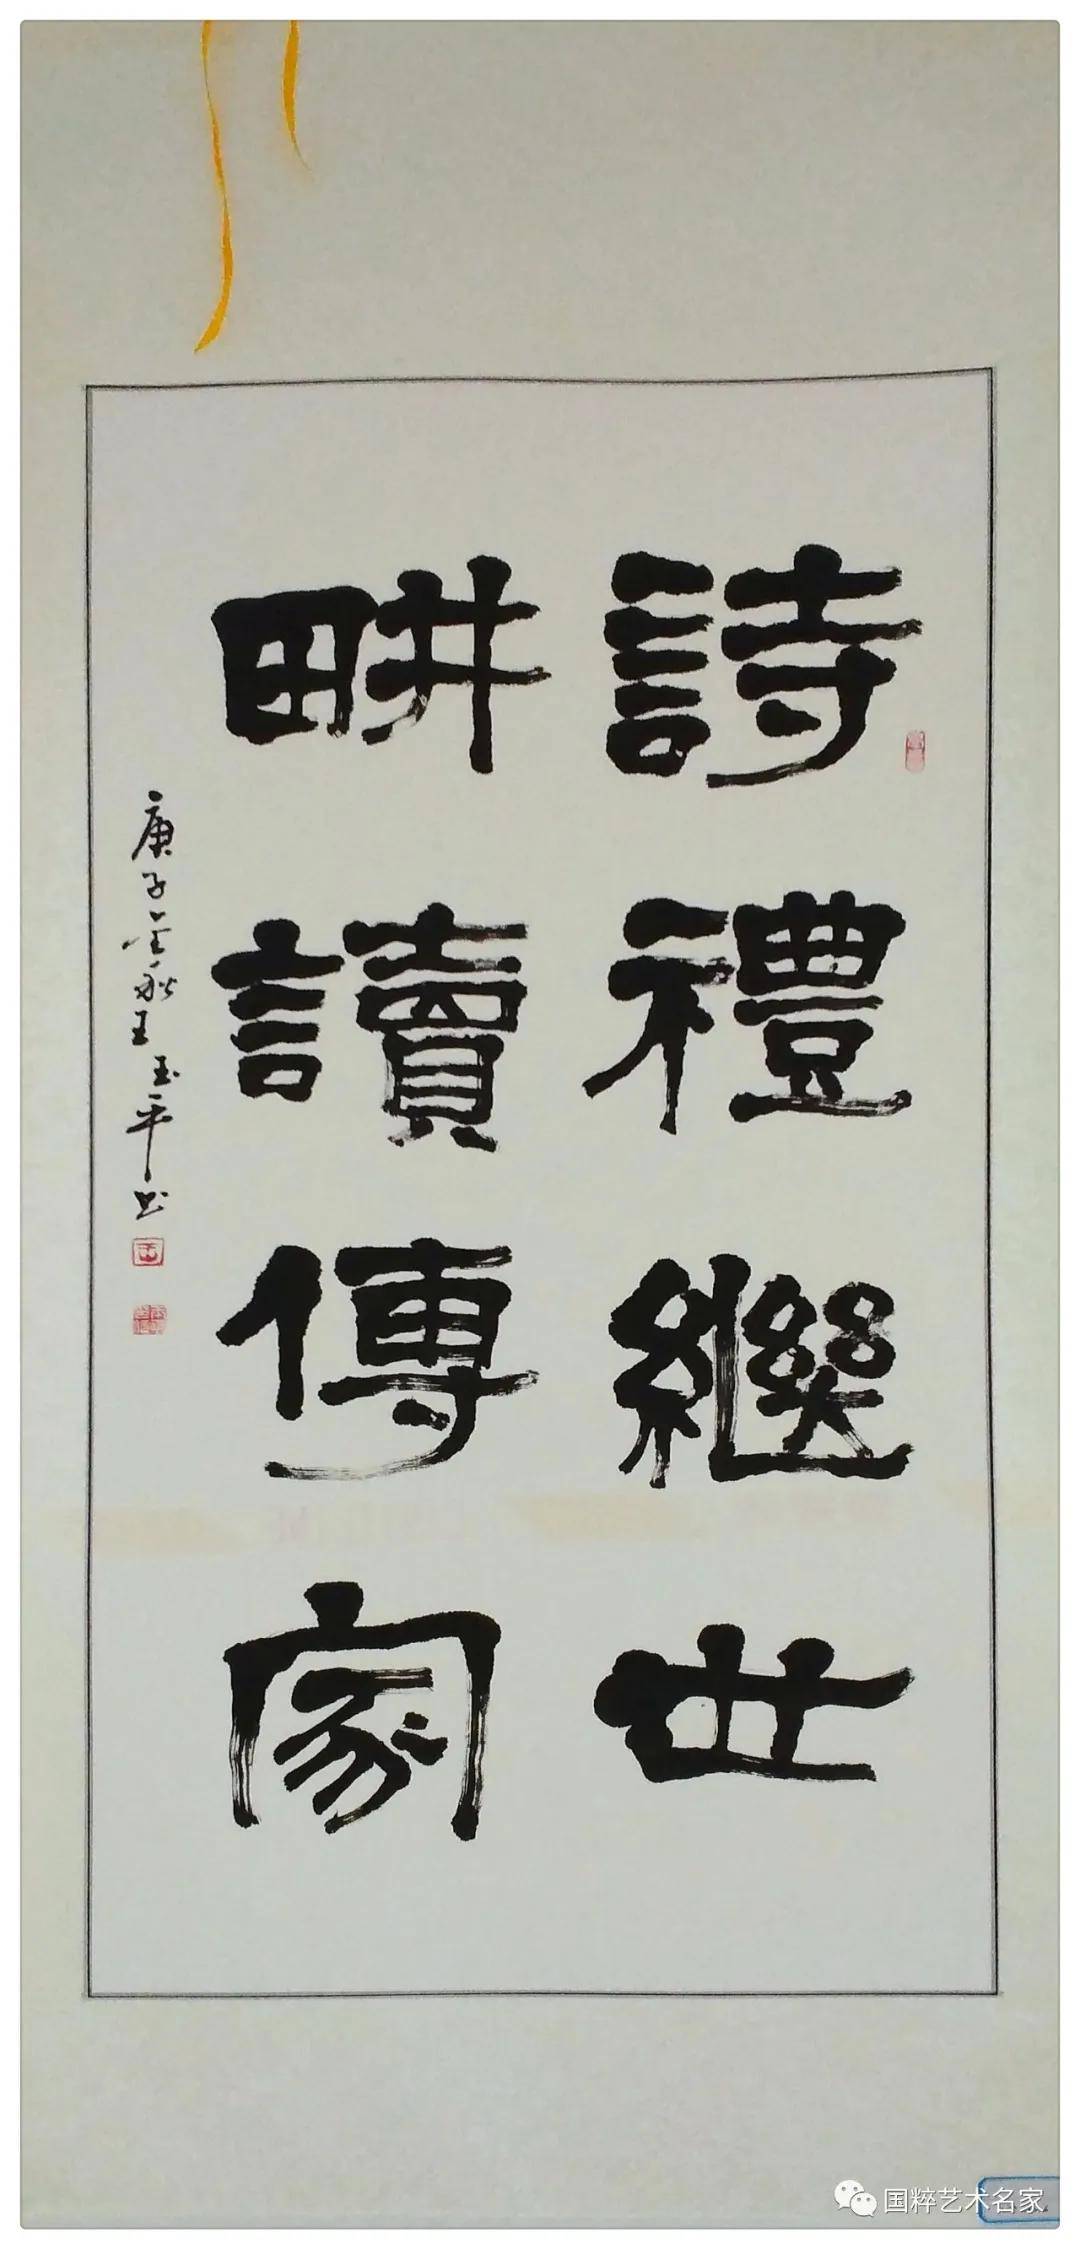 詩禮繼世
畊讀傳家
庚子金秋王玉平书
国粹艺术名家